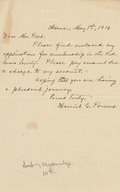 May 1st, 1919
Dear Mr. Peet.
Please find enclosed my
application for membership in the
Society. Please pay amount due
charge to my account.
hoping that you are having
a pleasant journey.
Yours truly,
Harriet E.